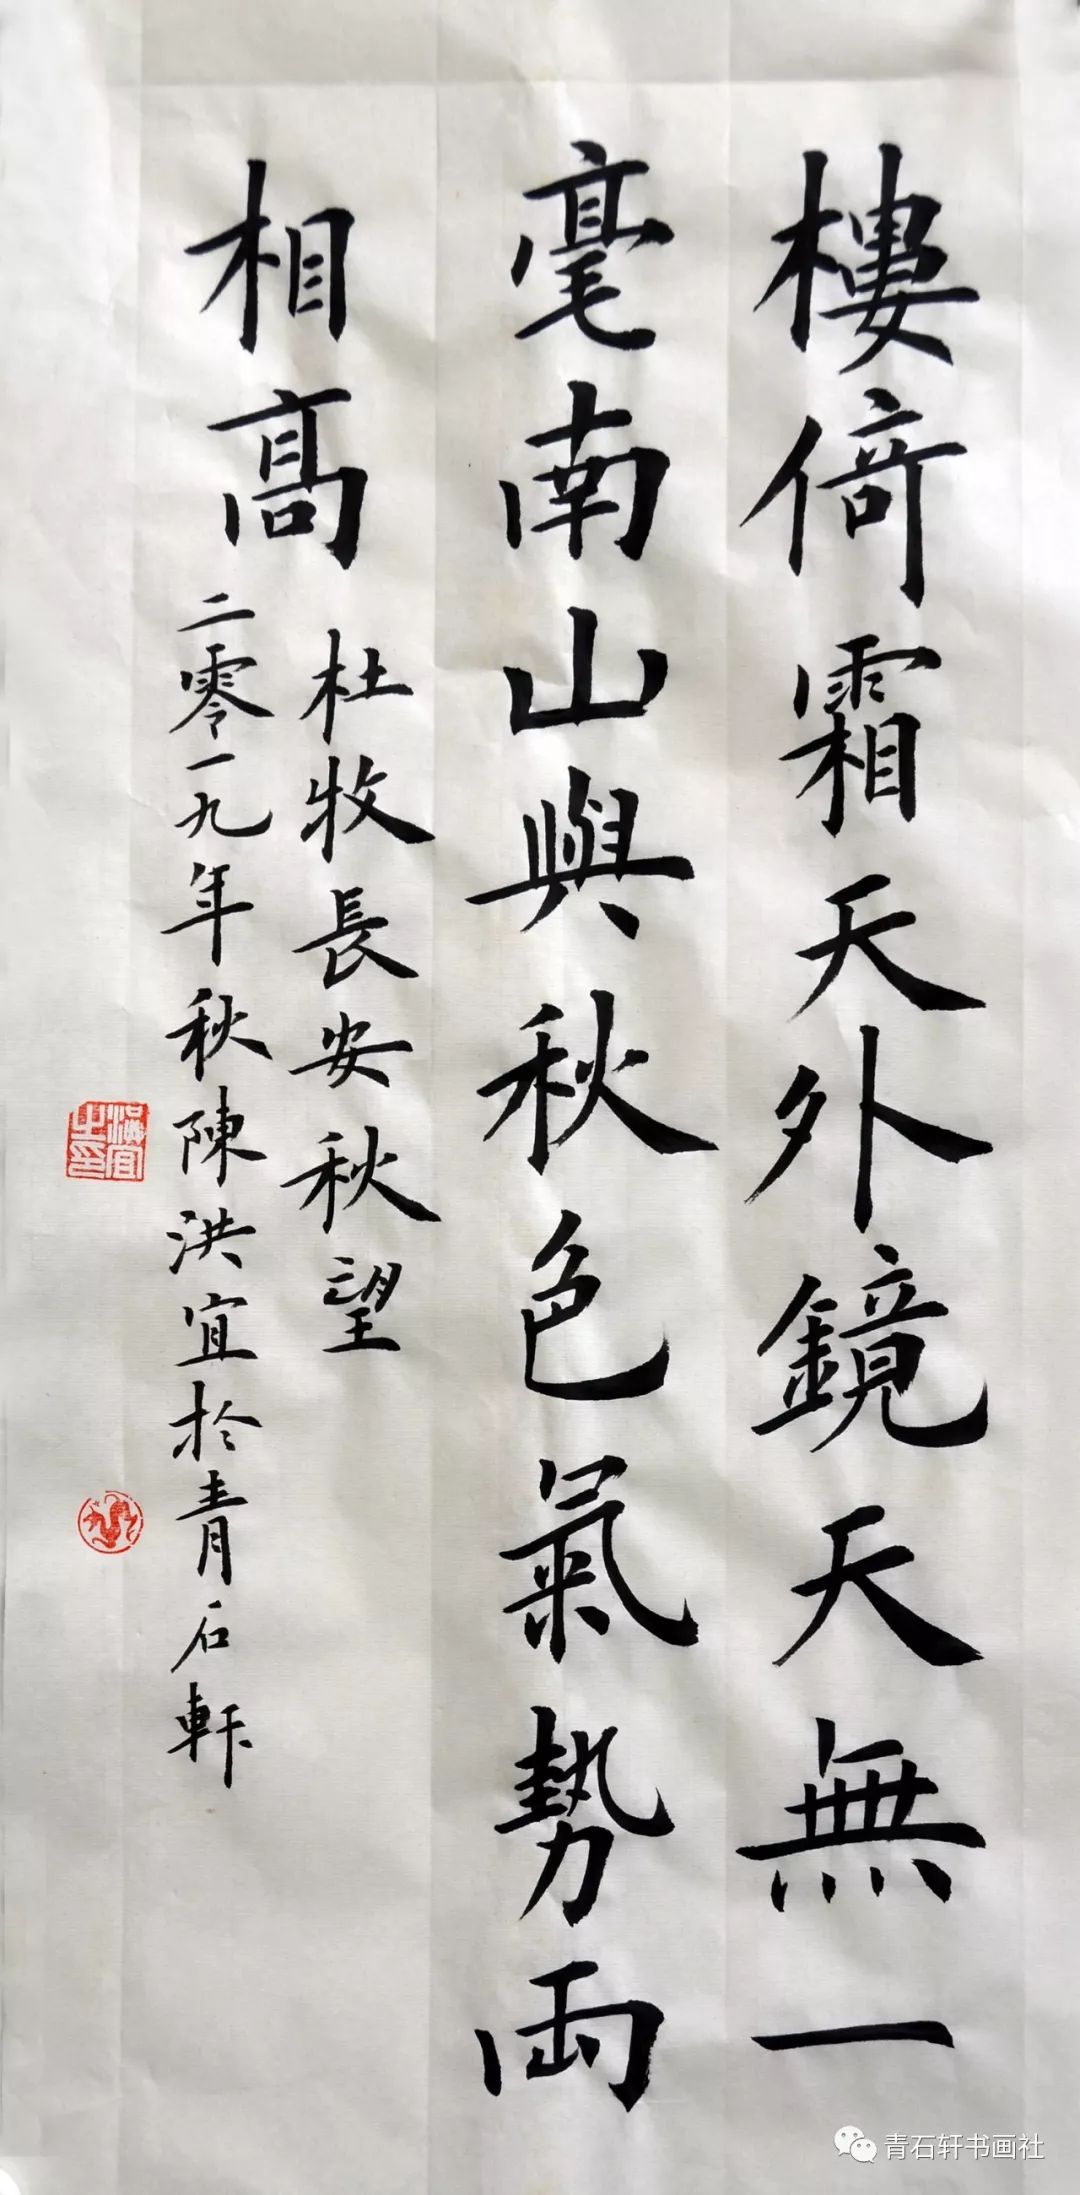 樓倚霜天外鏡天無一
毫南山與秋色氣勢兩
相高
杜牧長安秋望
二零一九年秋陳洪宜於青石軒
洪宜之印
青石轩书画社